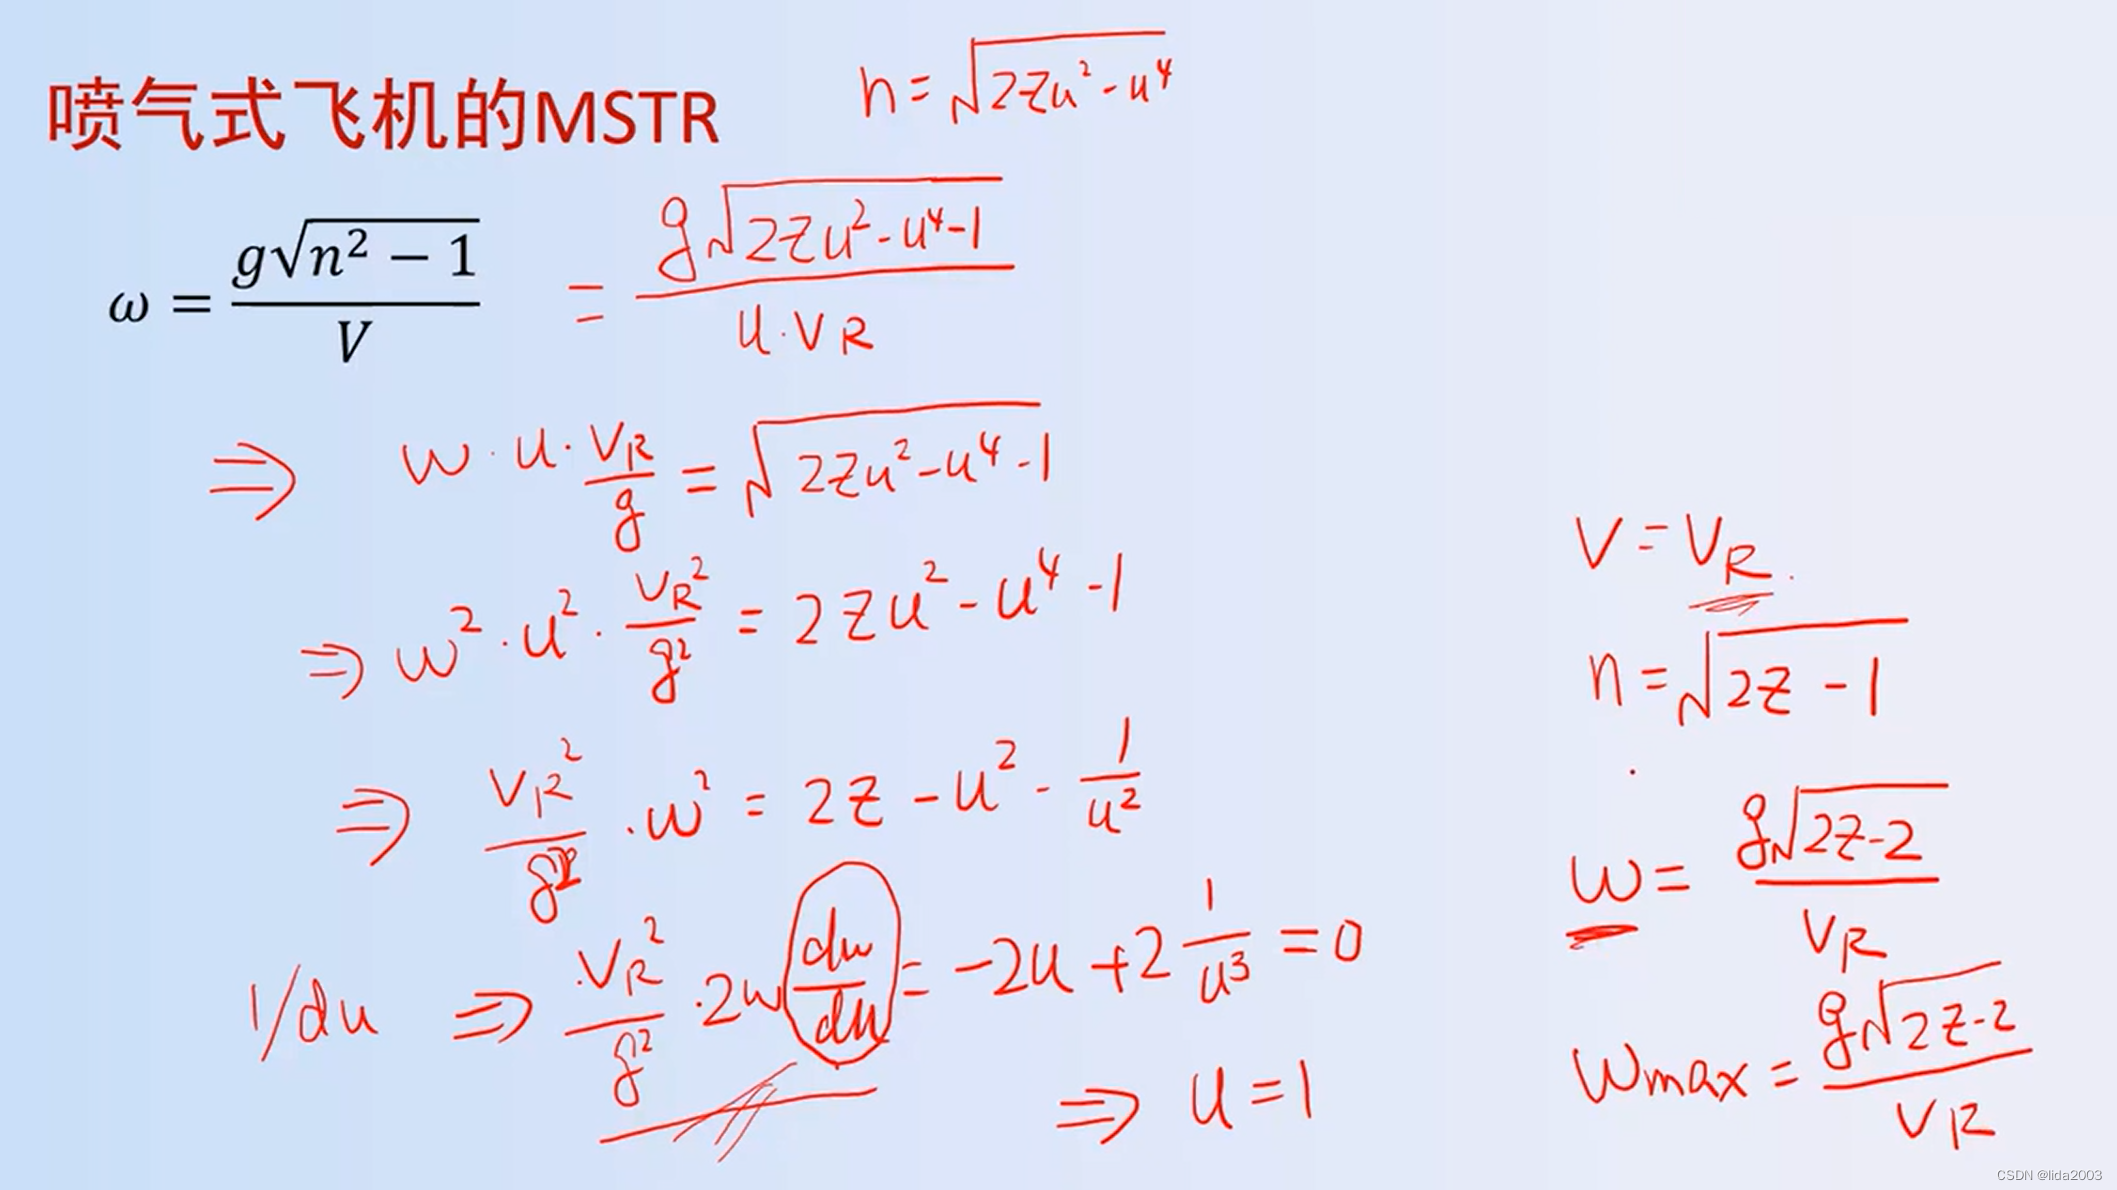 n = √(2Zu² - u⁴)
喷气式飞机的MSTR
ω = g√(n² − 1) / V = g√(2Zu² - u⁴ - 1) / (u · VR)
⇒ w · u · VR/g = √(2Zu² - u⁴ - 1)
⇒ w² · u² · VR²/g² = 2Zu² - u⁴ - 1
⇒ VR²/g² · w² = 2Z - u² - 1/u²
1/du ⇒ VR²/g² · 2w dw/du = -2u + 2 1/u³ = 0
⇒ u = 1
V = VR
n = √(2Z - 1)
w = g√(2Z-2) / VR
wmax = g√(2Z-2) / VR
CSDN @lida2003